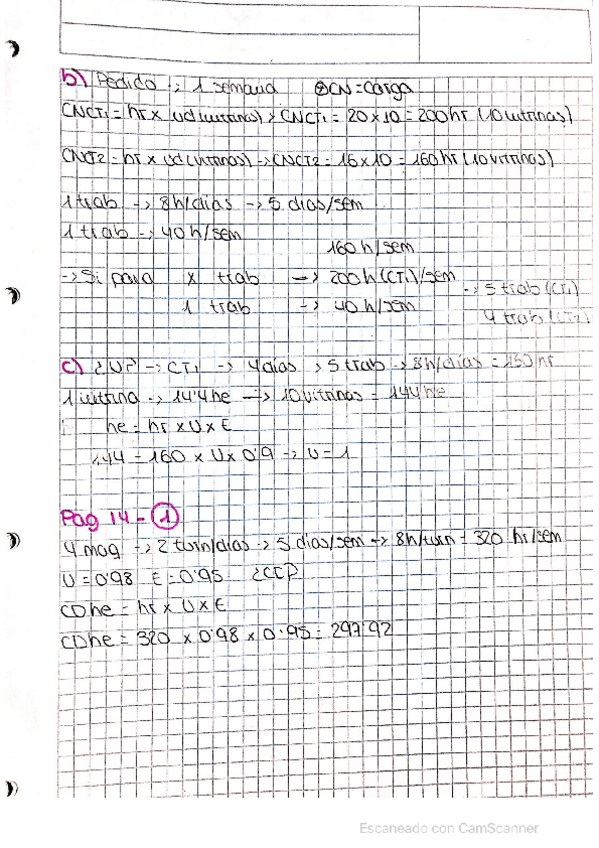 b) Pedido : 1 semana ⊗CN = carga
CNCT1 = hr x ud (vitrinas) > CNCT1 = 20 x 10 = 200 hr (10 vitrinas)
CNCT2 = hr x ud (vitrinas) -> CNCT2 = 16 x 10 = 160 hr (10 vitrinas)
1 trab -> 8h/dias -> 5 dias/sem
1 trab -> 40 h/sem
160 h/sem
-> Si para x trab -> 200h (CT1)/sem -> 5 trab (CT1)
1 trab -> 40 h/sem 4 trab (CT2)
c) ¿U? -> CT1 -> 4 dias > 5 trab -> 8h/dias = 160 hr
1 vitrina -> 14'4 he -> 10 vitrinas = 144 he
he = hr x U x E
144 = 160 x U x 0'9 -> U = 1
Pág 14 - 1
4 maq -> 2 turn/dias -> 5 dias/sem -> 8h/turn = 320 hr/sem
U = 0'98 E = 0'95 ¿CD?
CDhe = hr x U x E
CDhe = 320 x 0'98 x 0'95 = 297'92
Escaneado con CamScanner